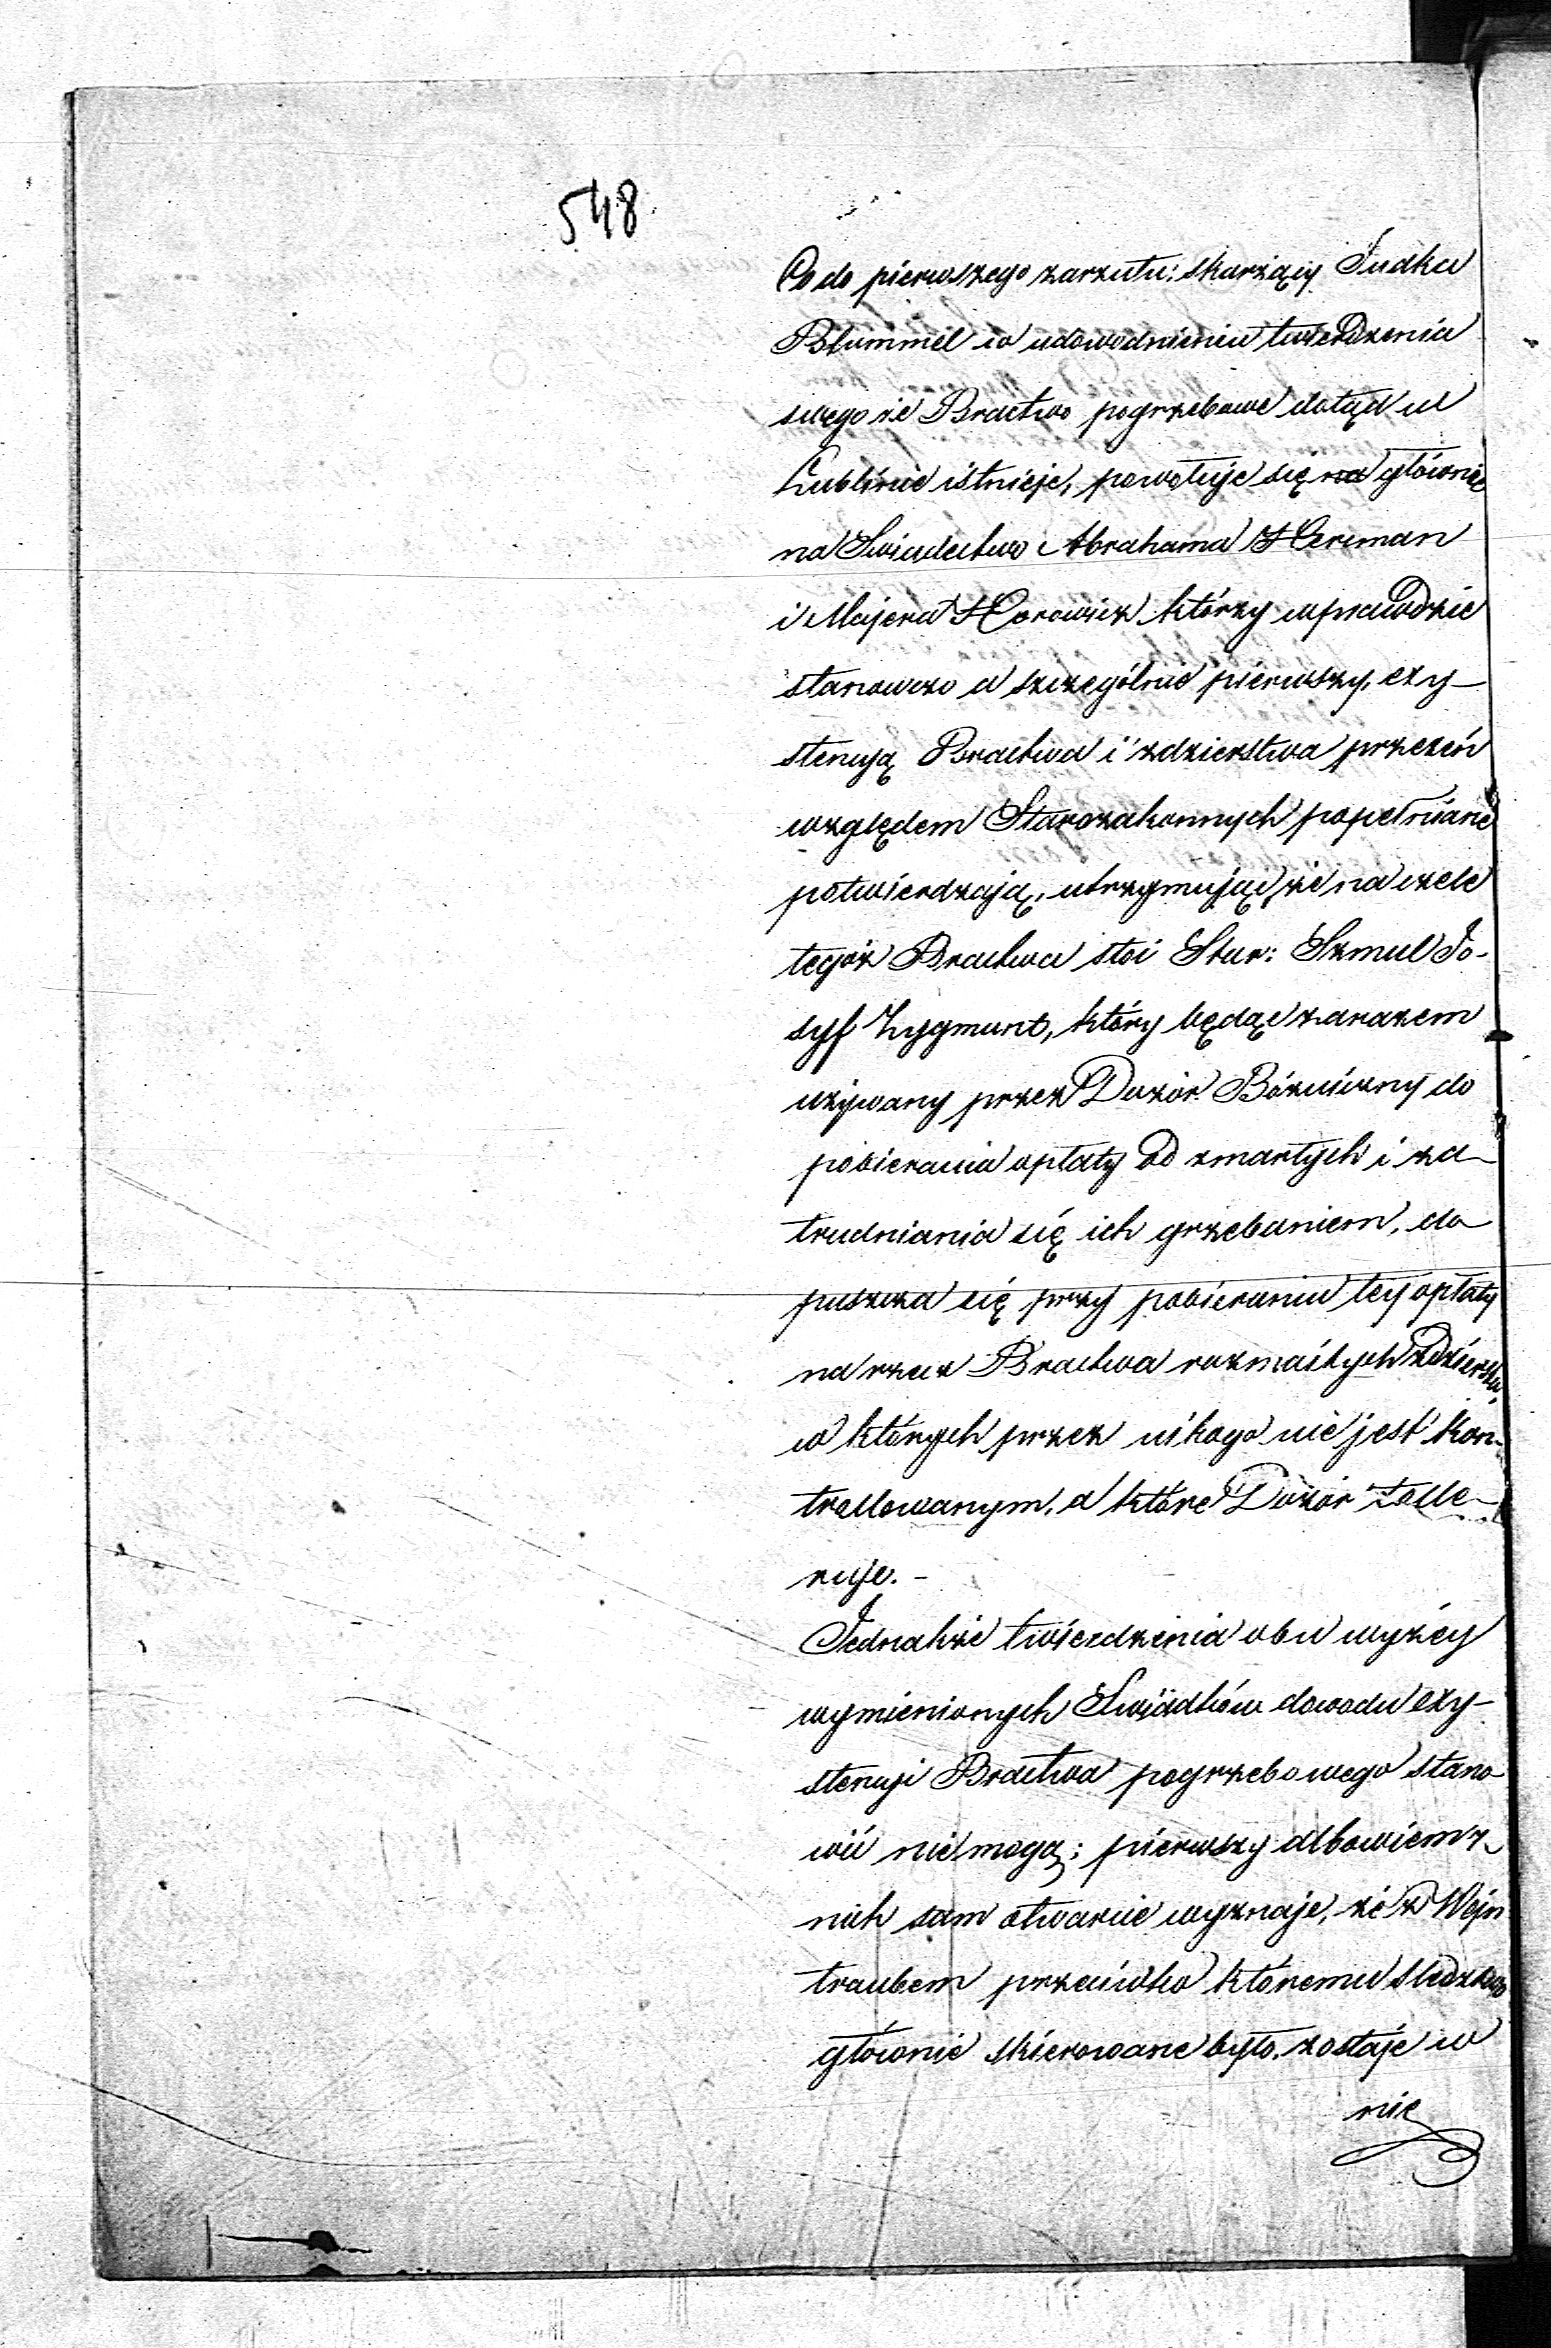 548
Co do pierwszego zarzutu: skarżący Judka
Blummel w udowodnieniu twierdzenia
swego że Bractwo pogrzebowe dotąd w
Lublinie istnieje, powołuje się na głównie
na Swiadectwo Abrahama Herman
i Majera Horowicz którzy wprawdzie
stanowczo a szczególnie pierwszy, exy-
stencyą Bractwa i zdzierstwa przezeń
względem Starozakonnych popełniane
potwierdzają, utrzymując że na czele
tegoż Bractwa stoi Star: Szmul Jo-
syf Zygmunt, który będąc zarazem
używany przez Dozór Bóźniczny do
pobierania opłaty od zmarłych i za-
trudniania się ich grzebaniem, do
puszcza się przy pobieraniu tej opłaty
na rzecz Bractwa rozmaitych zdzierstw,
w których przez nikogo nie jest kon-
trollowanym, a które Dozór tolle-
ruje. -
Jednakże twierdzenia obu wyżéy
wymienionych Swiadków dowodu exy-
stencyi Bractwa pogrzebowego stano
wić nie mogą; pierwszy albowiem z
nich sam otwarcie wyznaje, że z Wejn
traubem przeciwko któremu śledztwo
głównie skierowane było, zostaje w
nie